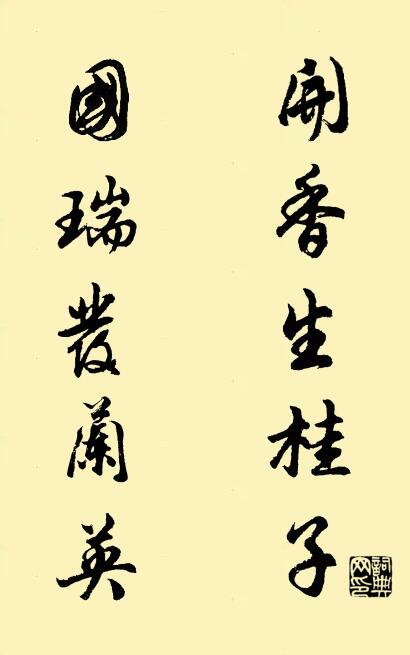 開香生桂子
國瑞發蘭英
詞典
网印